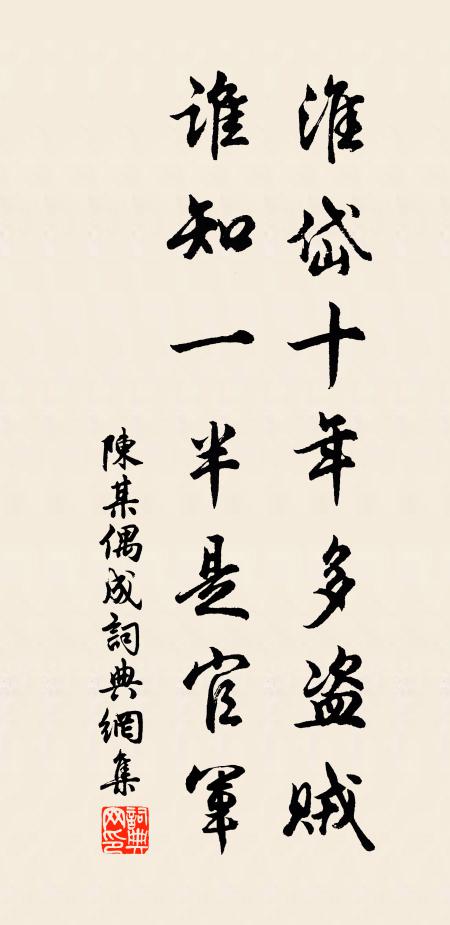 淮岱十年多盗賊
誰知一半是官軍
陳某偶成詞典網集
詞典网印